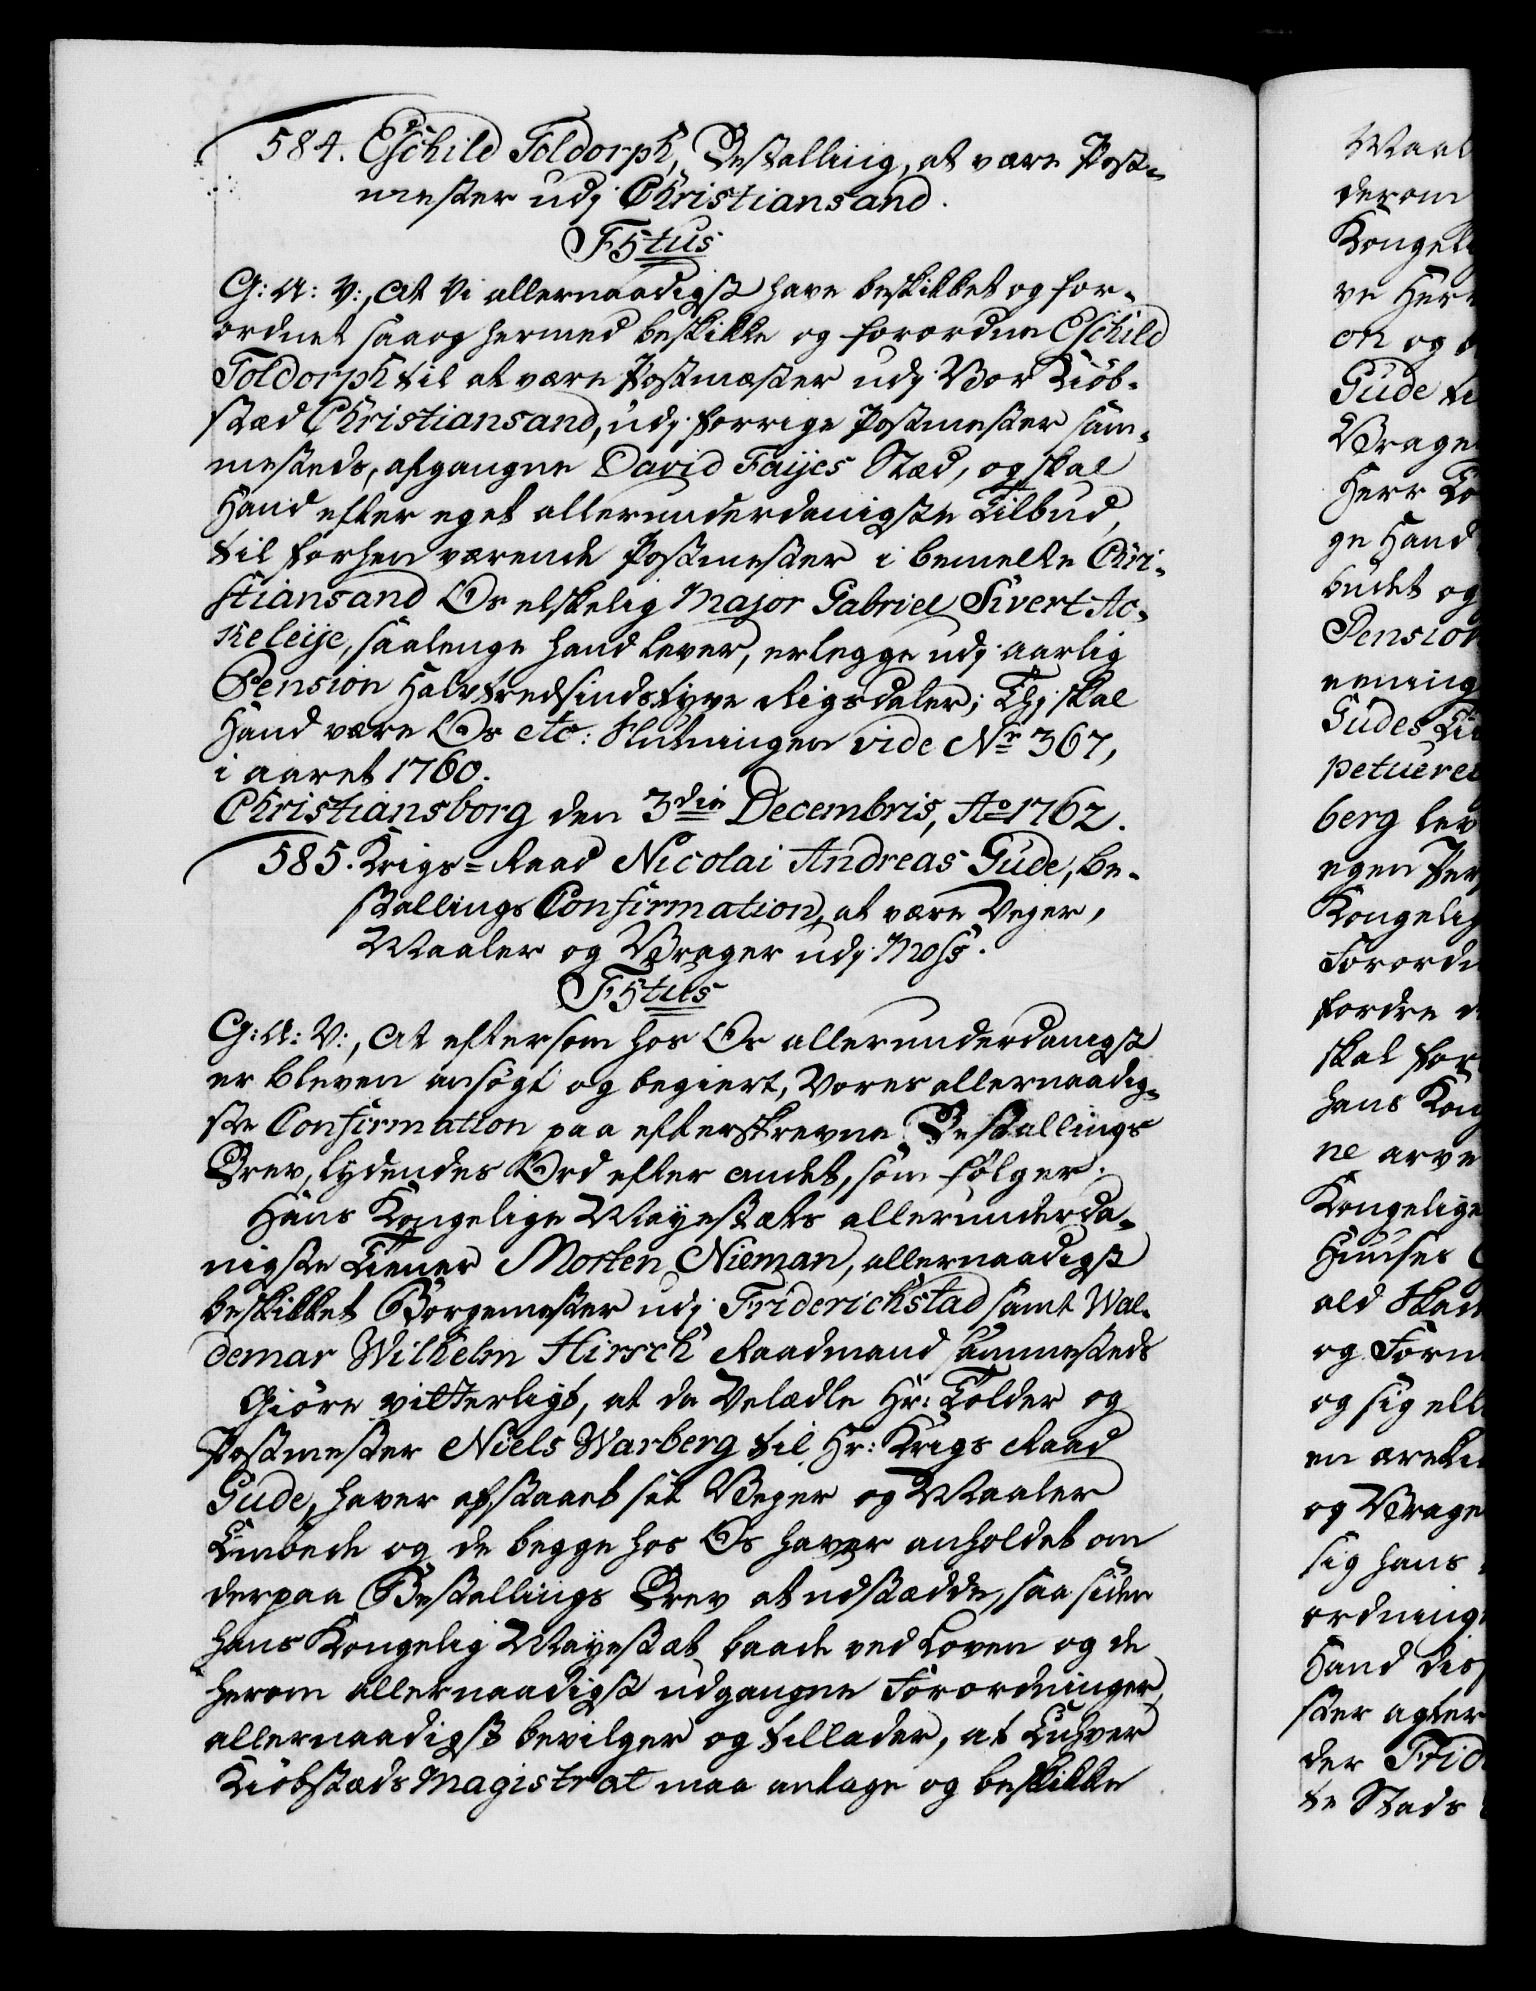 584. Eschild Toldorph, Bestalling, at være Post-
mester udj Christiansand.
F5tus
G: A: V:, At Vi allernaadigst have beskikket og for-
ordnet saa og hermed beskikke og forordne Eschild
Toldorph til at være Postmester udj Vor Kiöb-
stæd Christiansand, udj forrige Postmester sam-
mesteds, afgangne David Faijes Stæd, og skal
Hand efter eget allerunderdanigste Tilbud,
til forhen værende Postmester i bemelte Chri-
stiansand Os elskelig Major Gabriel Sivert Ac-
keleije, saalenge hand lever, erlegge udj aarlig
Pension Halvtredsindstyve Rigsdaler; Thj skal
Hand være Os etc: Slutningen vide Nr 367,
i aaret 1760.
Christiansborg den 3die Decembris, Ao 1762.
585. Krigs-Raad Nicolai Andreas Gude, be-
stallings Confirmation, at være Vejer,
Maaler og Vrager udj Moss.
F5tus
G: A: V:, At eftersom hos Os allerunderdanigst
er bleven ansögt og begiert, Vores allernaadig-
ste Confirmation paa efterskrevne Bestallings
Brev, lydendes Ord efter andet, som fölger:
Hans Kongelige Mayestæts allerunderda-
nigste Tiener Morten Nieman, allernaadigst
beskikket Borgemester udj Friderichstad samt Wal-
demar Wilhelm Hirsch Raadmand sammesteds
Giöre vitterligt, at da Velædle Hr: Tolder og
Postmester Niels Warberg til Hr: Krigs Raad
Gude, haver afstaaet sit Vejer og Maaler
Embede og de begge hos Os haver anholdet om
derpaa Bestallings Brev at udstædde, saa siden
hans Kongelig Mayestæt baade ved Loven og de
herom allernaadigst udgangne Forordninger,
allernaadigst bevilger og tillader, at Enhver
Kiöbstæds Magistrat maa antage og beskikke
Maal
derom
Kongeli
ve Herr
on og
Gude ti
Vrage
Herr To
ge Hand
budet og
Pension
eening
Gudes
petuere
berg lev
egen Per
Kongelig
Forordn
fordre
skal for
hans Kong
ne arve
Kongelige
Huuses
ald Skad
og Forn
og sig ell
en
og Vrage
sig hans
ordning
Hand des
ster agter
der Frid
te Stads